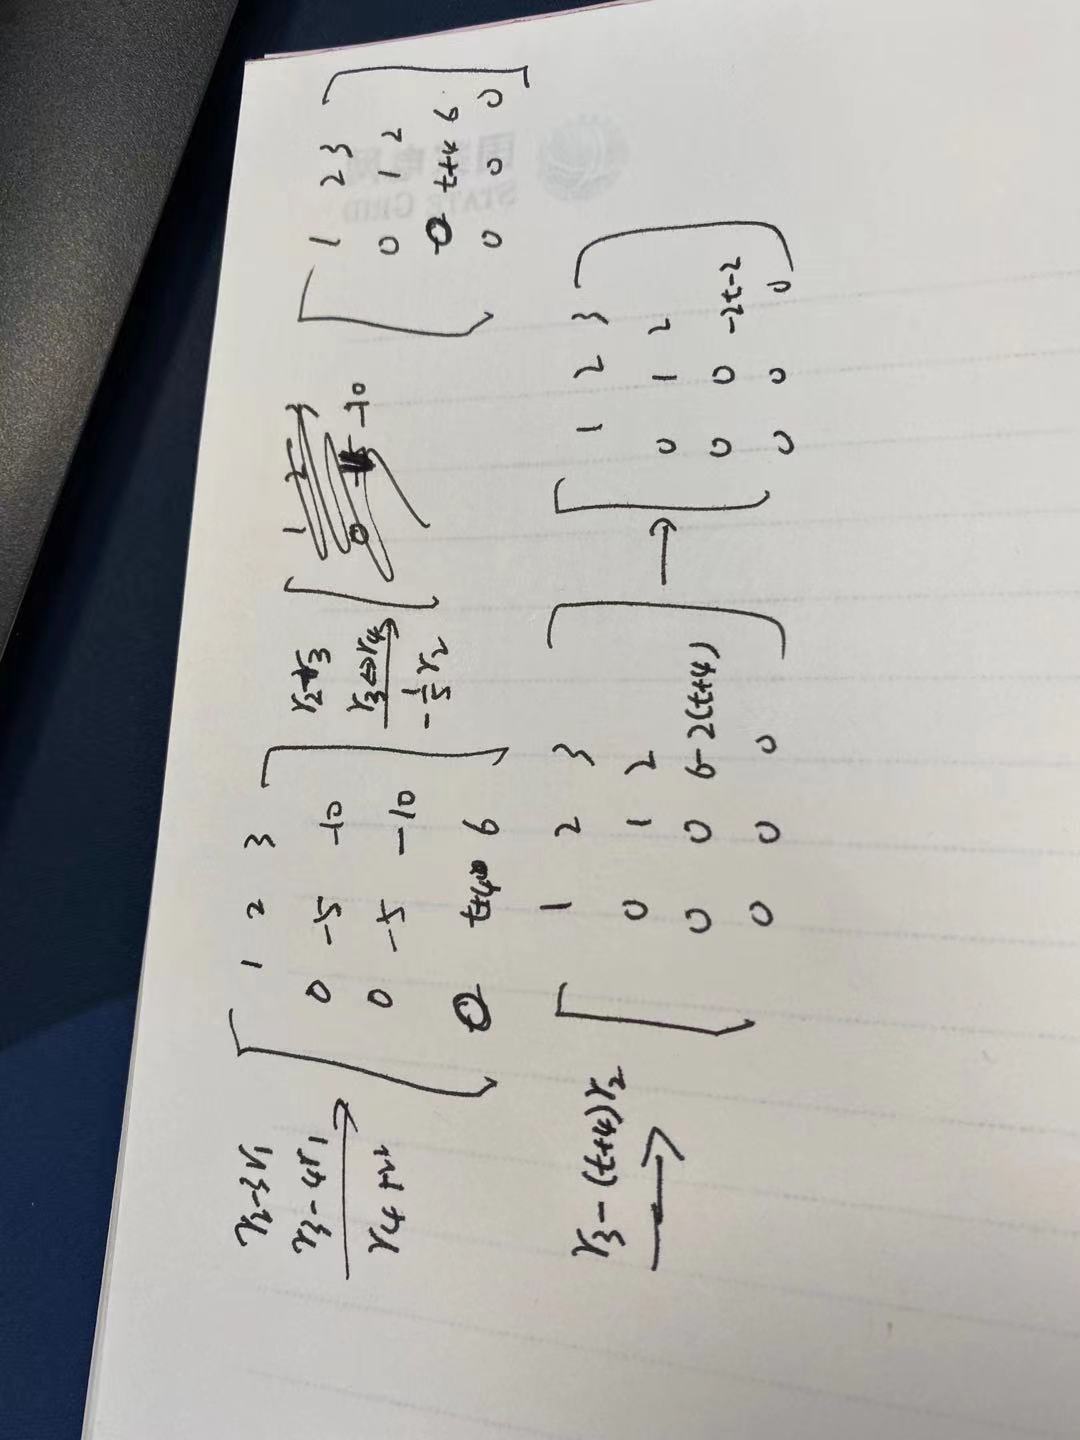 r₂-3r₁
r₃-4r₁
r₄+r₁
1 2 3
0 -5 -10
0 -5 -10
0 t+4 6
r₂-r₃
r₃↔r₄
-1/5 r₂
1 2 3
0 1 2
0 t+4 6
0 0 0
r₃-(t+4)r₂
→
1 2 3
0 1 2
0 0 6-2(t+4)
0 0 0
→
1 2 3
0 1 2
0 0 -2t-2
0 0 0
国家电网
STATE GRID